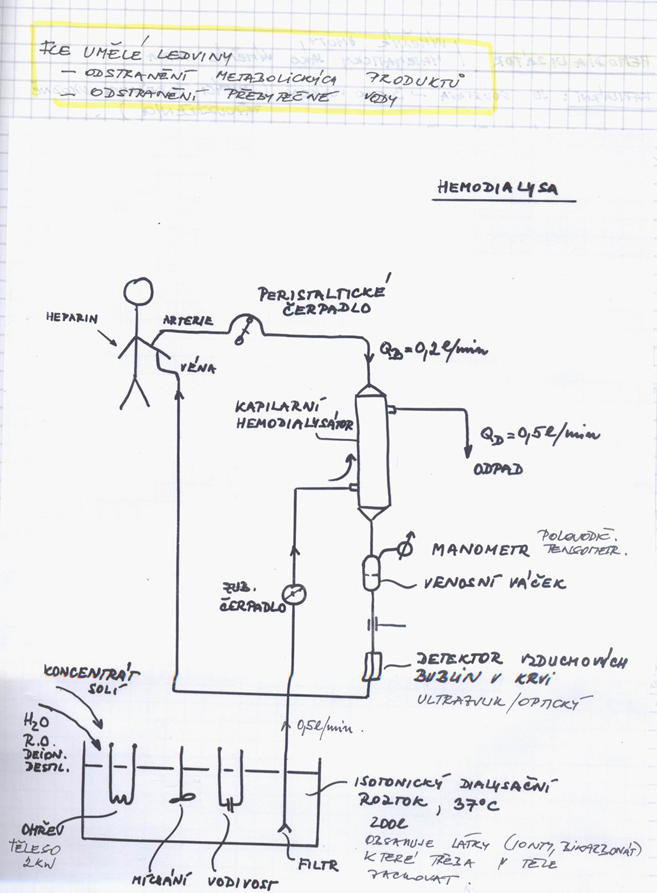 FCE UMĚLÉ LEDVINY
– ODSTRANĚNÍ METABOLICKÝCH PRODUKTŮ
– ODSTRANĚNÍ PŘEBYTEČNÉ VODY
HEMODIALYSA
PERISTALTICKÉ
ČERPADLO
HEPARIN
ARTERIE
VÉNA
QB = 0,2l/min
KAPILARNÍ
HEMODIALYSÁTOR
QD = 0,5l/min
ODPAD
MANOMETR
POLOVODIČ.
TENSOMETR.
ZUB.
ČERPADLO
VENOSNÍ VÁČEK
DETEKTOR VZDUCHOVÝCH
BUBLIN V KRVI
ULTRAZVUK/OPTICKÝ
KONCENTRÁT
SOLÍ
H2O
R.O.
DEION.
DESTIL.
0,5l/min.
ISOTONICKÝ DIALYSAČNÍ
ROZTOK, 37°C
200l
OBSAHUJE LÁTKY (IONTY, BIKARBONÁT)
KTERÉ TŘEBA V TĚLE
ZACHOVAT
OHŘEV
TĚLESO
2KW
MÍCHÁNÍ
VODIVOST
FILTR